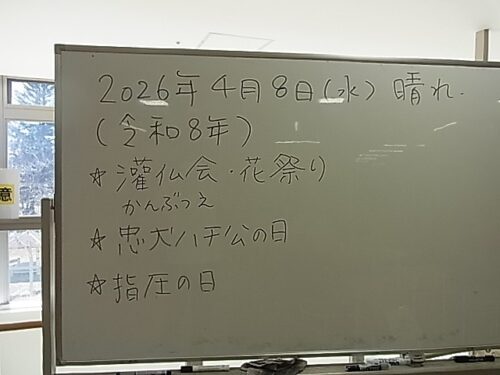 2026年4月8日(水) 晴れ.
(令和8年)
☆灌仏会・花祭り
かんぶつえ
☆忠犬ハチ公の日
☆指圧の日
意